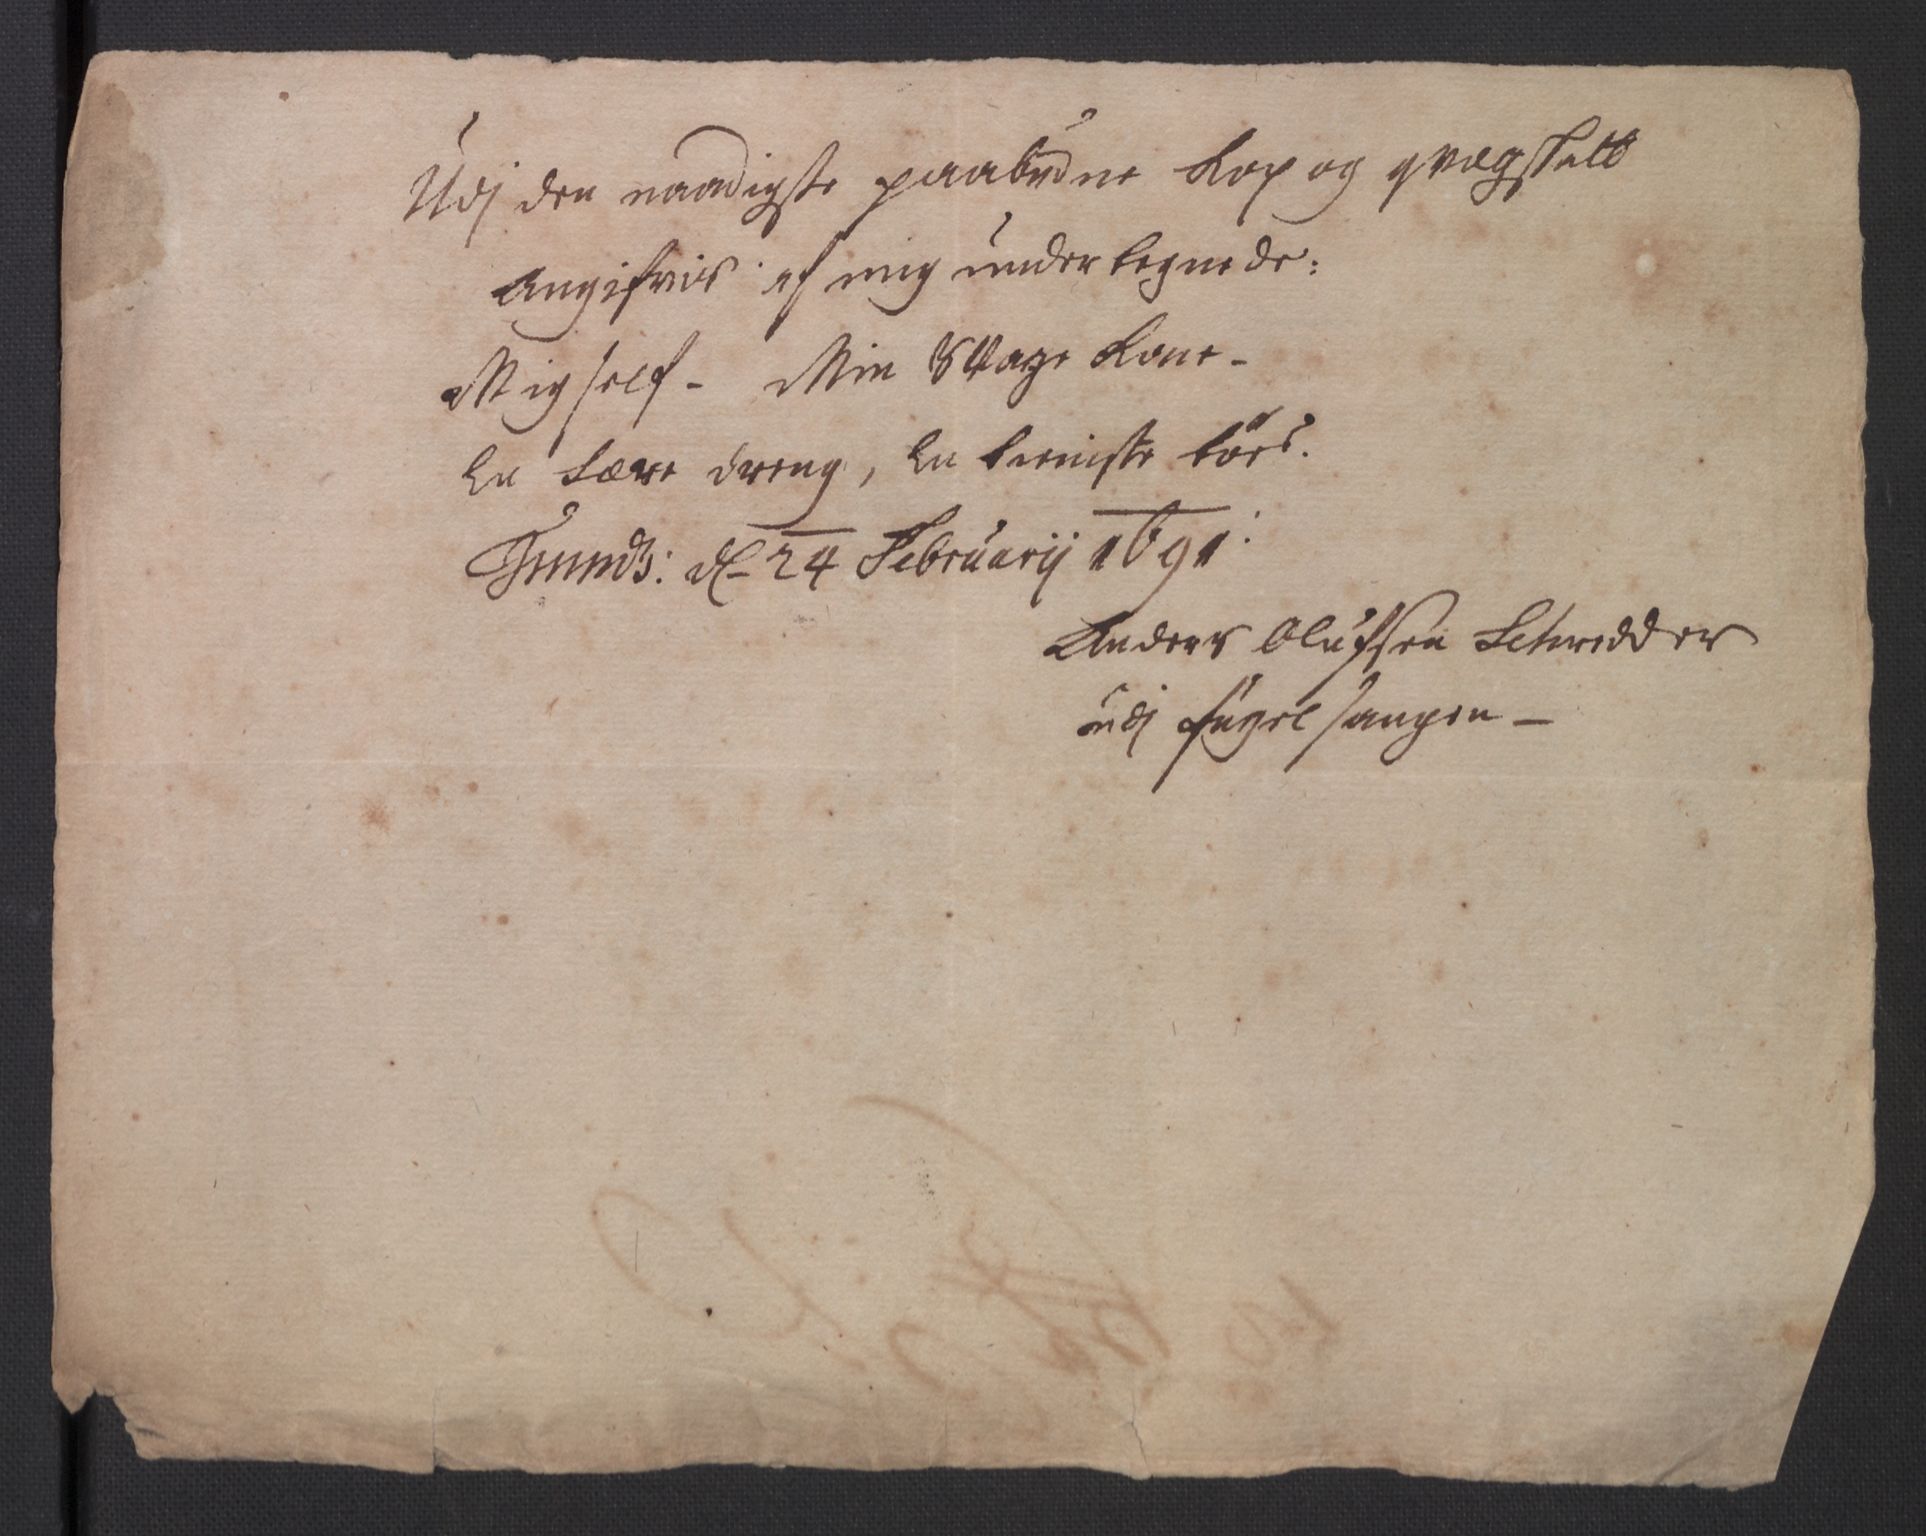 Udj den naadigste paabudne Kop og qvægskatt
Angifvis af mig undertegnede:
Mig self - Min Svage Kone -
En Lære dreng, En tieniste töes.
Trundh: d. 24 Februarij 1691:
Anders Olufsen Schredder
udj fugelsangen -